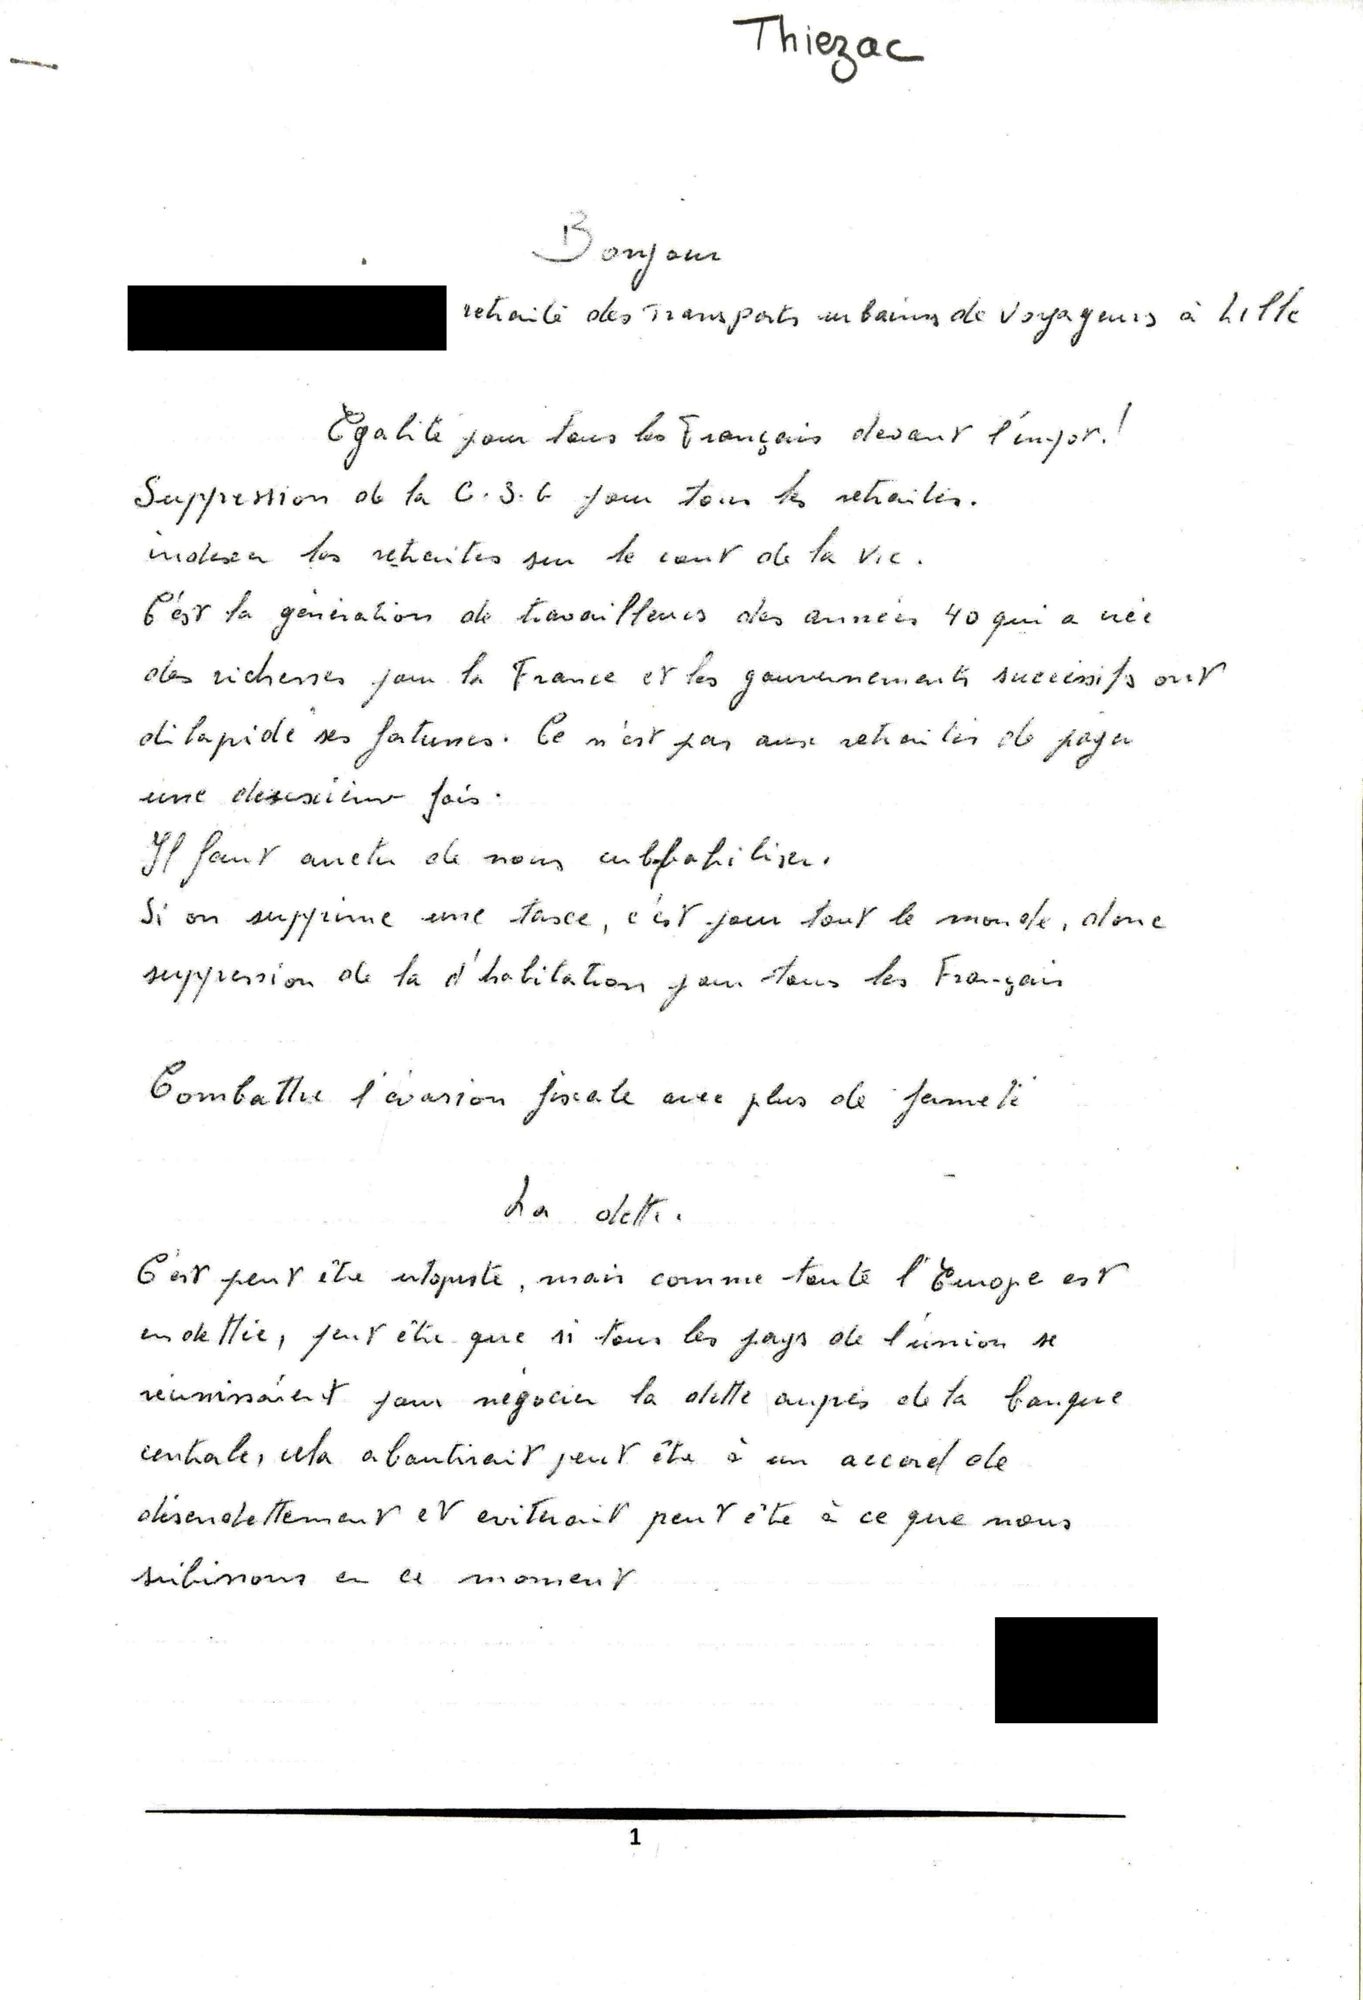 Thiezac
Bonjour
retraité des Transports urbains de Voyageurs à Lille
Egalité pour tous les Français devant l'impot!
Suppression de la C.S.G pour tous les retraités.
indexer les retraites sur le cout de la vie.
C'est la génération de travailleurs des années 40 qui a créé
des richesses pour la France et les gouvernements successifs ont
dilapidé ses fortunes. Ce n'est pas aux retraités de payer
une deuxième fois.
Il faut arreter de nous culpabiliser.
Si on supprime une taxe, c'est pour tout le monde, donc
suppression de la d'habitation pour tous les Français
Combattre l'évasion fiscale avec plus de fermeté
La dette.
C'est peut être utopiste, mais comme toute l'Europe est
endettée, peut être que si tous les pays de l'union se
réunissaient pour négocier la dette auprès de la banque
centrale, cela aboutirait peut être à un accord de
désendettement et eviterait peut être à ce que nous
subissons en ce moment
1